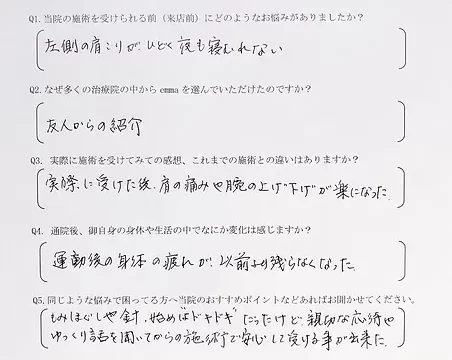 Q1.当院の施術を受けられる前（来店前）にどのようなお悩みがありましたか？
左側の肩こりがひどく夜も寝むれない
Q2.なぜ多くの治療院の中から emma を選んでいただけたのですか？
友人からの紹介
Q3. 実際に施術を受けてみての感想、これまでの施術との違いはありますか？
実際に受けた後、肩の痛みや腕の上げ下げが楽になった
Q4. 通院後、御自身の身体や生活の中でなにか変化は感じますか？
運動後の身体の疲れが以前より残らなくなった
Q5.同じような悩みで困ってる方へ当院のおすすめポイントなどあればお聞かせてください。
もみほぐしや針、始めはドキドキだったけど、親切な応待や
ゆっくり話を聞いてからの施術で安心して受ける事が出来た